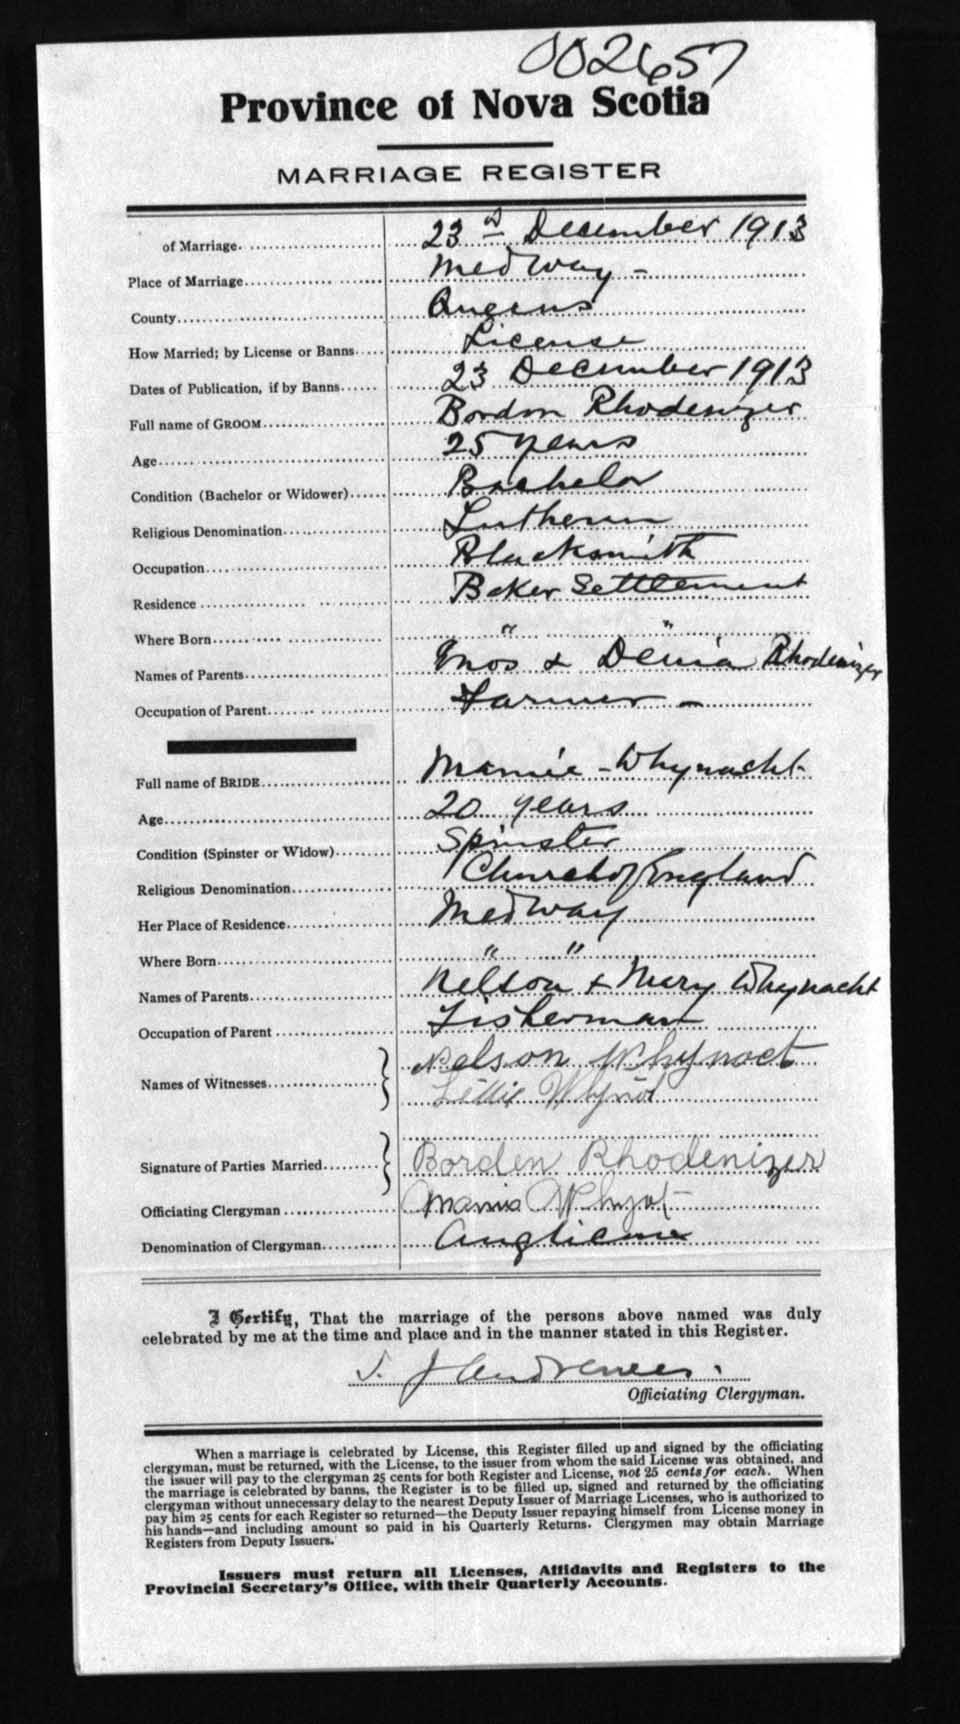 002657
Province of Nova Scotia
MARRIAGE REGISTER
of Marriage. 23d December 1913
Place of Marriage Medway -
County Queens
How Married; by License or Banns License
Dates of Publication, if by Banns 23 December 1913
Full name of GROOM Bordon Rhodenizer
Age 25 years
Condition (Bachelor or Widower) Bachelor
Religious Denomination Lutheran
Occupation Blacksmith
Residence Baker Settlement
Where Born " "
Names of Parents Enos & Denia Rhodenizer
Occupation of Parent Farmer -
Full name of BRIDE Mamie Whynacht
Age 20 years
Condition (Spinster or Widow) Spinster
Religious Denomination Church of England
Her Place of Residence Medway
Where Born " "
Names of Parents Nelson & Mary Whynacht
Occupation of Parent Fisherman
Names of Witnesses Nelson Whynact
Lillie Whynot
Signature of Parties Married Borden Rhodenizer
Officiating Clergyman Mamie Whynot
Denomination of Clergyman Anglican
I Certify, That the marriage of the persons above named was duly
celebrated by me at the time and place and in the manner stated in this Register.
S. J. Andrews.
Officiating Clergyman.
When a marriage is celebrated by License, this Register filled up and signed by the officiating
clergyman, must be returned, with the License, to the issuer from whom the said License was obtained, and
the issuer will pay to the clergyman 25 cents for both Register and License, not 25 cents for each. When
the marriage is celebrated by banns, the Register is to be filled up, signed and returned by the officiating
clergyman without unnecessary delay to the nearest Deputy Issuer of Marriage Licenses, who is authorized to
pay him 25 cents for each Register so returned—the Deputy Issuer repaying himself from License money in
his hands—and including amount so paid in his Quarterly Returns. Clergymen may obtain Marriage
Registers from Deputy Issuers.
Issuers must return all Licenses, Affidavits and Registers to the
Provincial Secretary's Office, with their Quarterly Accounts.